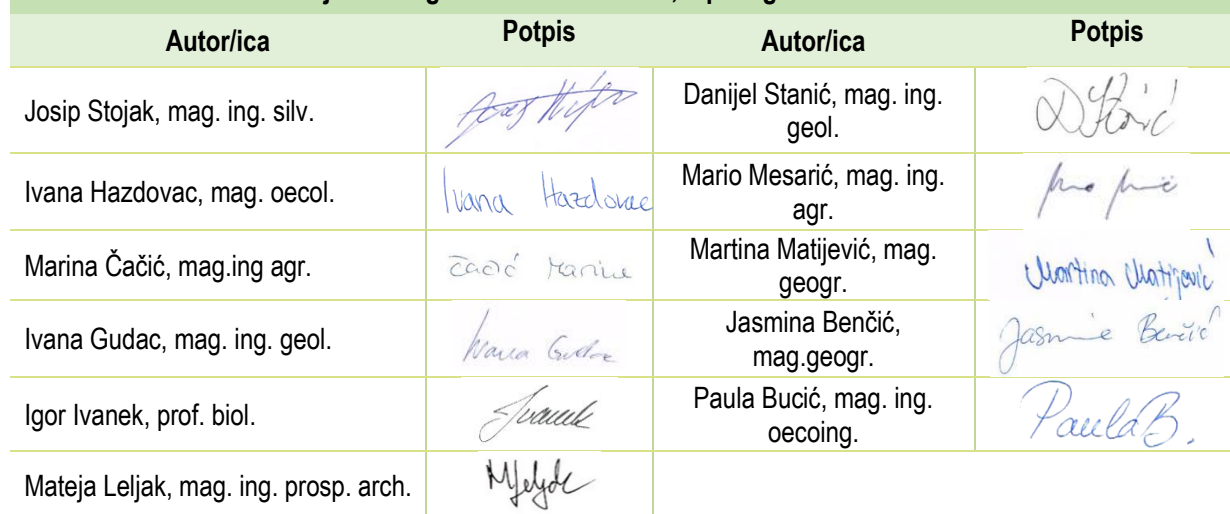 Autor/ica Potpis Autor/ica Potpis
Josip Stojak, mag. ing. silv. Danijel Stanić, mag. ing.
geol.
D Stanić
Ivana Hazdovac, mag. oecol. Ivana Hazdovac Mario Mesarić, mag. ing.
agr.
Marina Čačić, mag.ing agr. Čačić Marina Martina Matijević, mag.
geogr.
Martina Matijević
Ivana Gudac, mag. ing. geol. Ivana Gudac Jasmina Benčić,
mag.geogr.
Jasmina Benčić
Igor Ivanek, prof. biol. Ivanek Paula Bucić, mag. ing.
oecoing.
PaulaB.
Mateja Leljak, mag. ing. prosp. arch. MLeljak